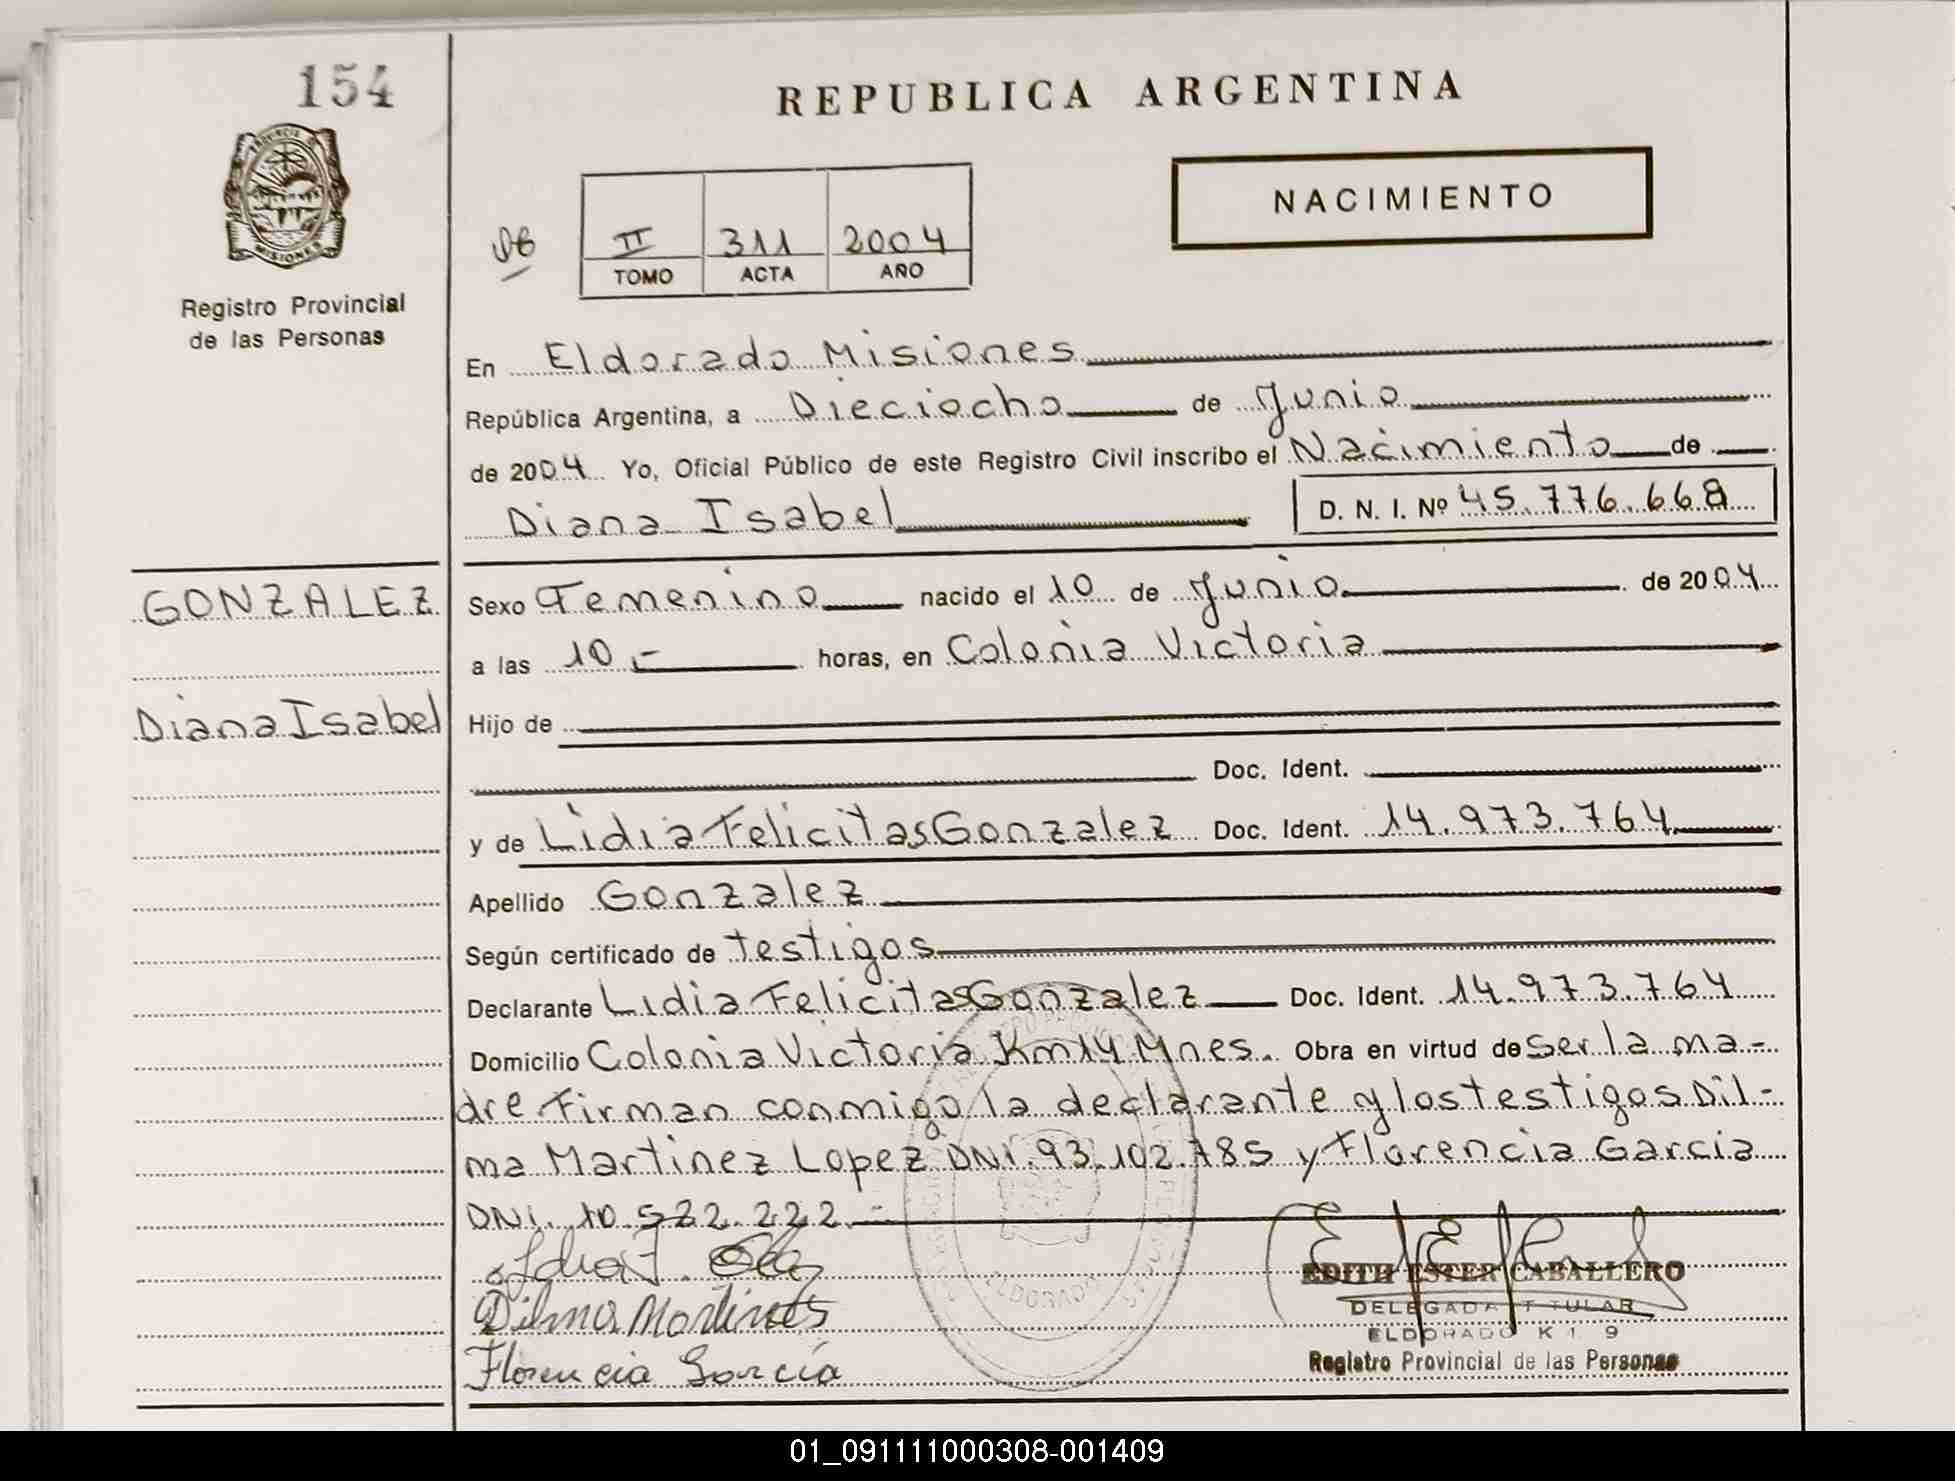 154
REPUBLICA ARGENTINA
PROVINCIA D
MISIONES
Registro Provincial
de las Personas
NACIMIENTO
II 311 2004
TOMO ACTA AÑO
En Eldorado Misiones
República Argentina, a Dieciocho de Junio
de 2004 Yo, Oficial Público de este Registro Civil inscribo el Nacimiento de
Diana Isabel D. N. I. Nº 45.776.668
GONZALEZ
Sexo Femenino nacido el 10 de Junio de 2004
a las 10.- horas, en Colonia Victoria
Diana Isabel
Hijo de
Doc. Ident.
y de Lidia Felicitas Gonzalez Doc. Ident. 14.973.764
Apellido Gonzalez
Según certificado de testigos
Declarante Lidia Felicitas Gonzalez Doc. Ident. 14.973.764
Domicilio Colonia Victoria Km 14 Mnes. Obra en virtud de Ser la ma-
dre Firman conmigo la declarante y los testigos Dil-
ma Martinez Lopez DNI. 93.102.785 y Florencia Garcia
DNI. 10.522.222.-
Dilma Martinez
Florencia García
ELDORADO
EDITH ESTER CABALLERO
DELEGADA TITULAR
ELDORADO K 1 9
Registro Provincial de las Personas
01_091111000308-001409